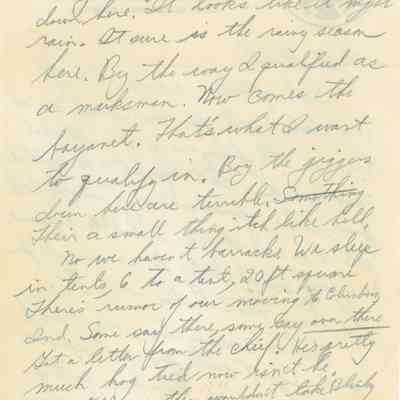 down here. It looks like it might
rain. It sure is the rainy season
here. By the way I qualified as
a marksman. Now comes the
bayanet. That's what I want
to qualify in. Boy the jiggers
down here are terrible. Something
Their a small thing itch like hell.
No we haven't barracks We sleep
in tents, 6 to a tent, 20 ft square
There's rumor of our moving to
Ind. Some say there, some say over there
Got a letter from the chief. Hes pretty
much hog tied now isn't he,
they wouldn't take